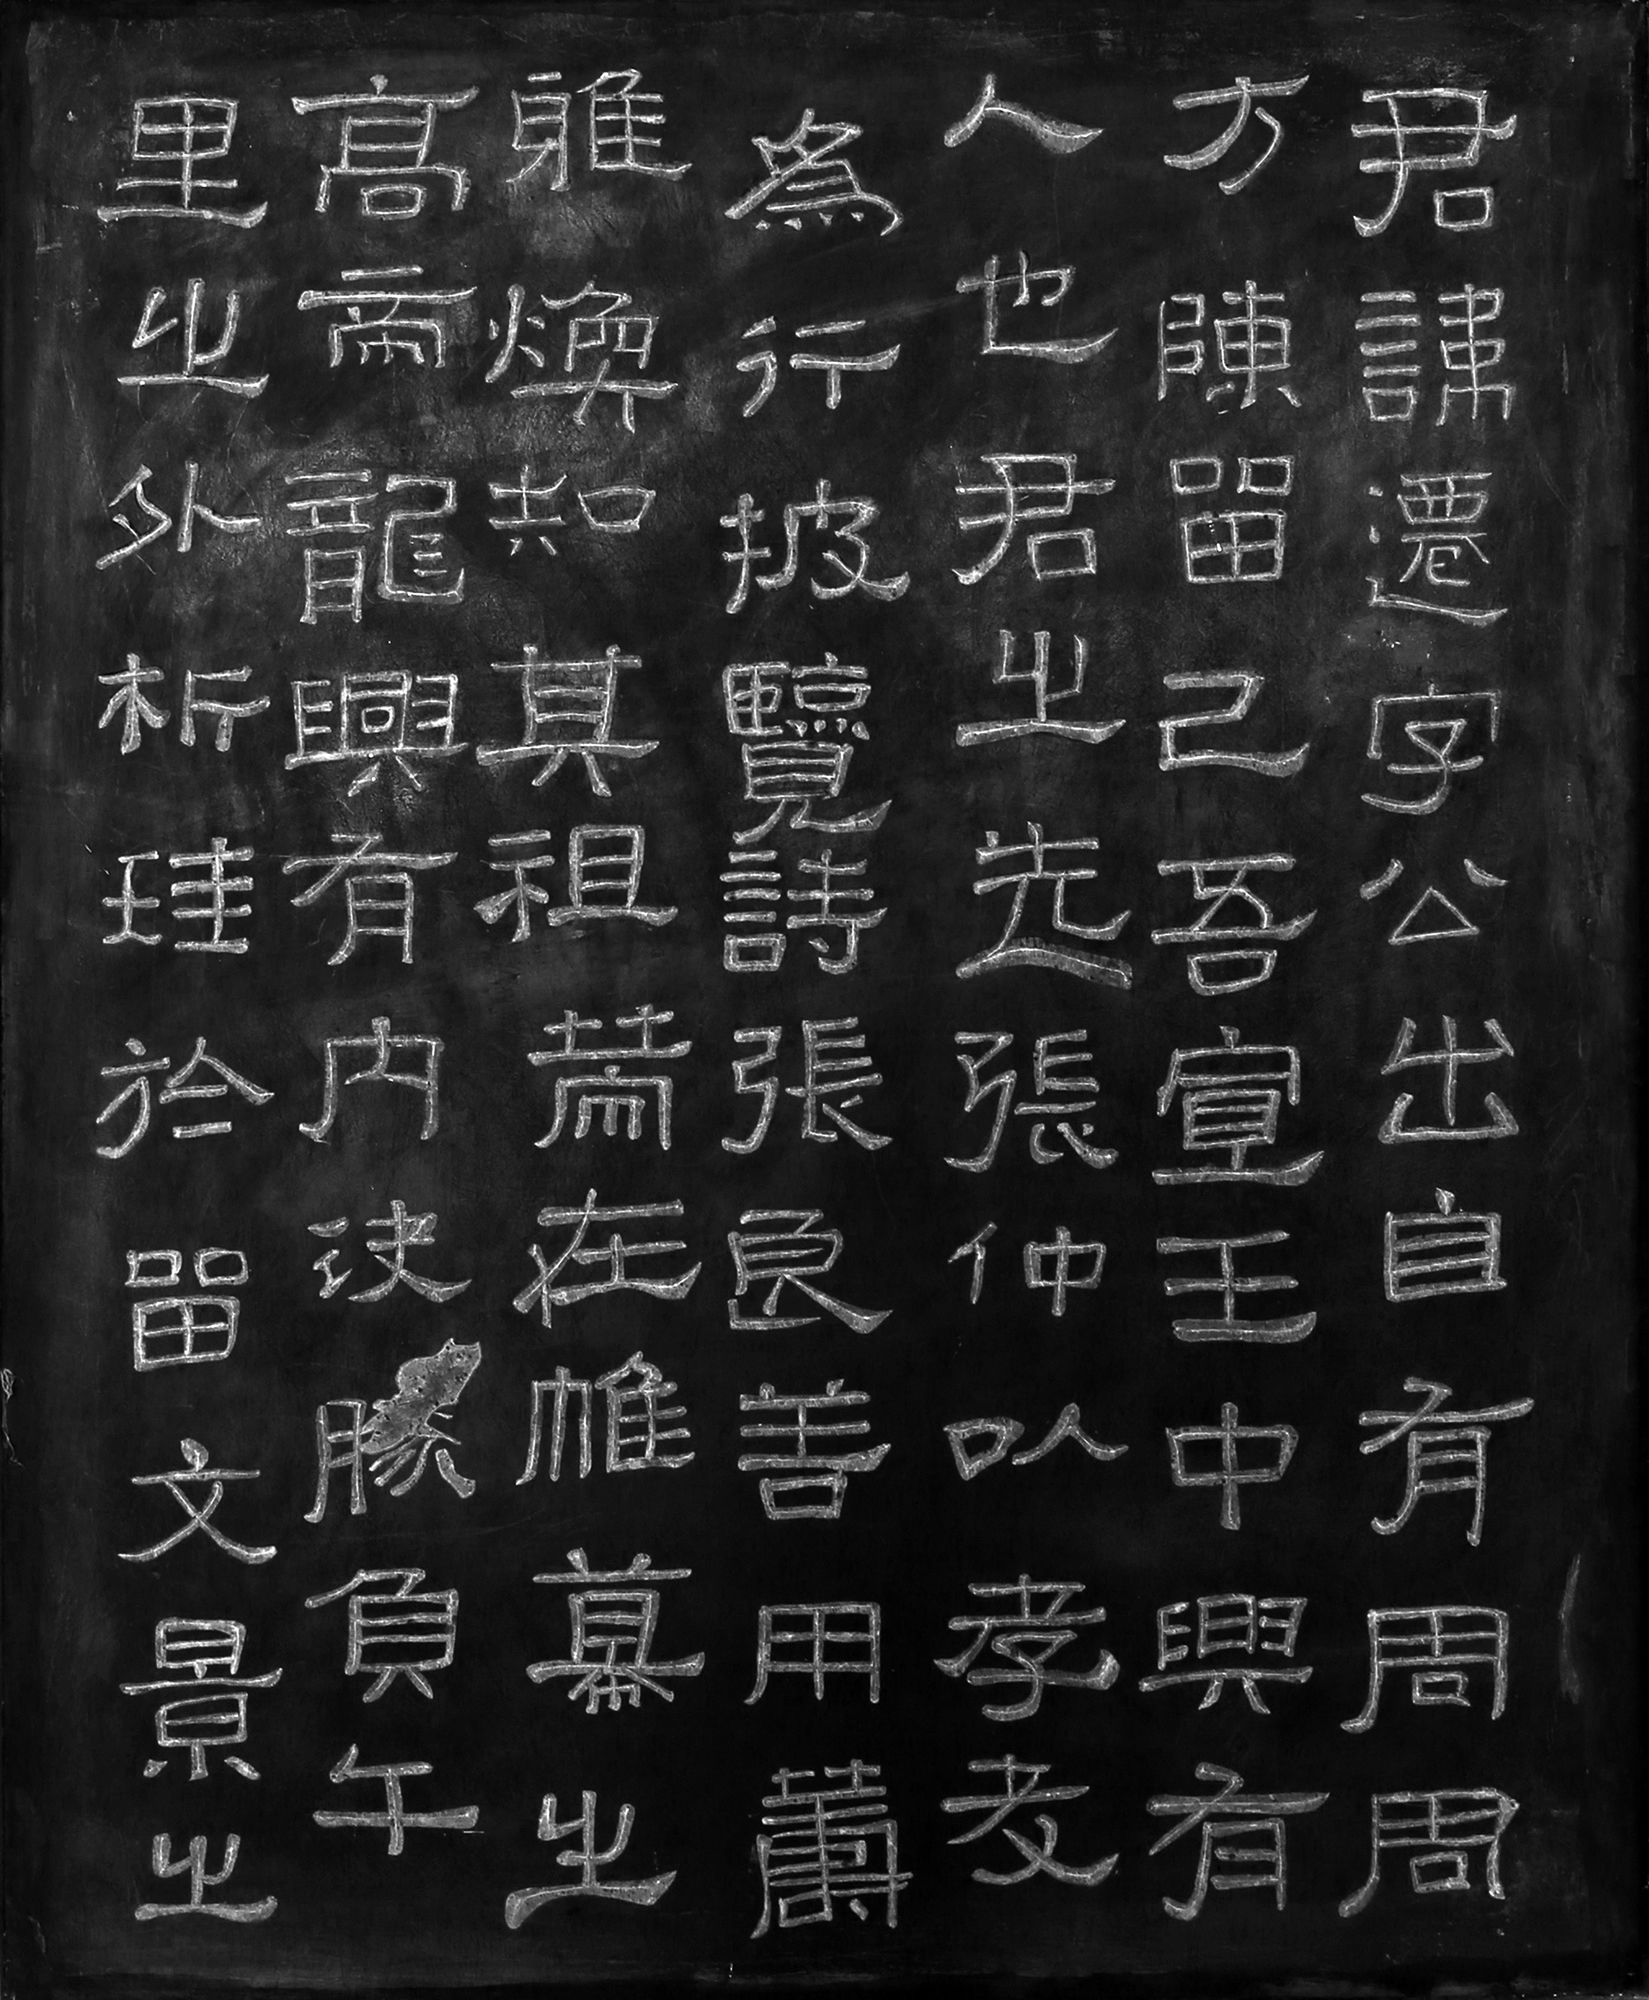 君諱遷字公出自有周周
方陳留己吾宣王中興有
人也君之先張仲以孝友
為行披覽詩張良善用籌
雅煥知其祖策在帷幕之
高帝龍興有內決勝負午
里之外析珪於留文景之